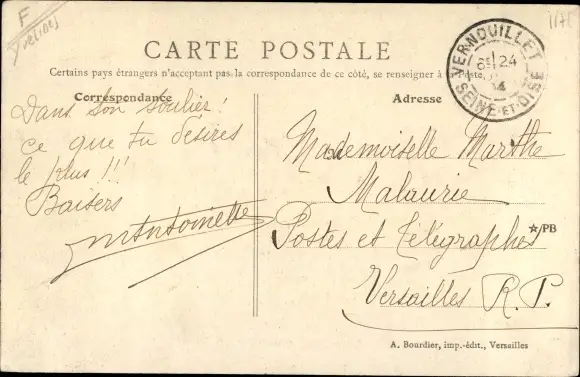 F
Yvelines
CARTE POSTALE
Certains pays étrangers n'acceptant pas la correspondance de ce côté, se renseigner à la Poste.
Correspondance
Adresse
Dans ton soulier!
ce que tu désires
le plus!!!
Baisers
MAntoinette
Mademoiselle Marthe
Malaurie
Postes et Télégraphes
Versailles R.P.
☆/PB
VERNOUILLET
24
SEINE-ET-OISE
A. Bourdier, imp.-édit., Versailles